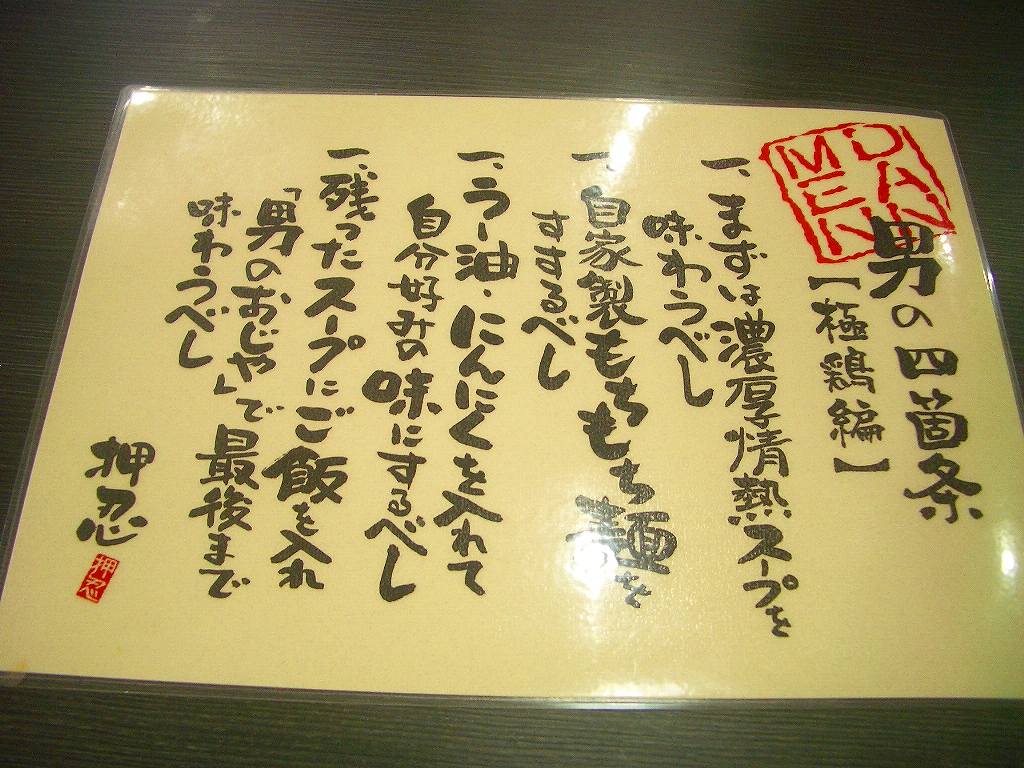 DAN
MEN
男の四箇条
【極鶏編】
一、まずは濃厚情熱スープを
味わうべし
一、自家製もちもち麺を
すするべし
一、ラー油・にんにくを入れて
自分好みの味にするべし
一、残ったスープにご飯を入れ
「男のおじや」で最後まで
味わうべし
押忍
押忍